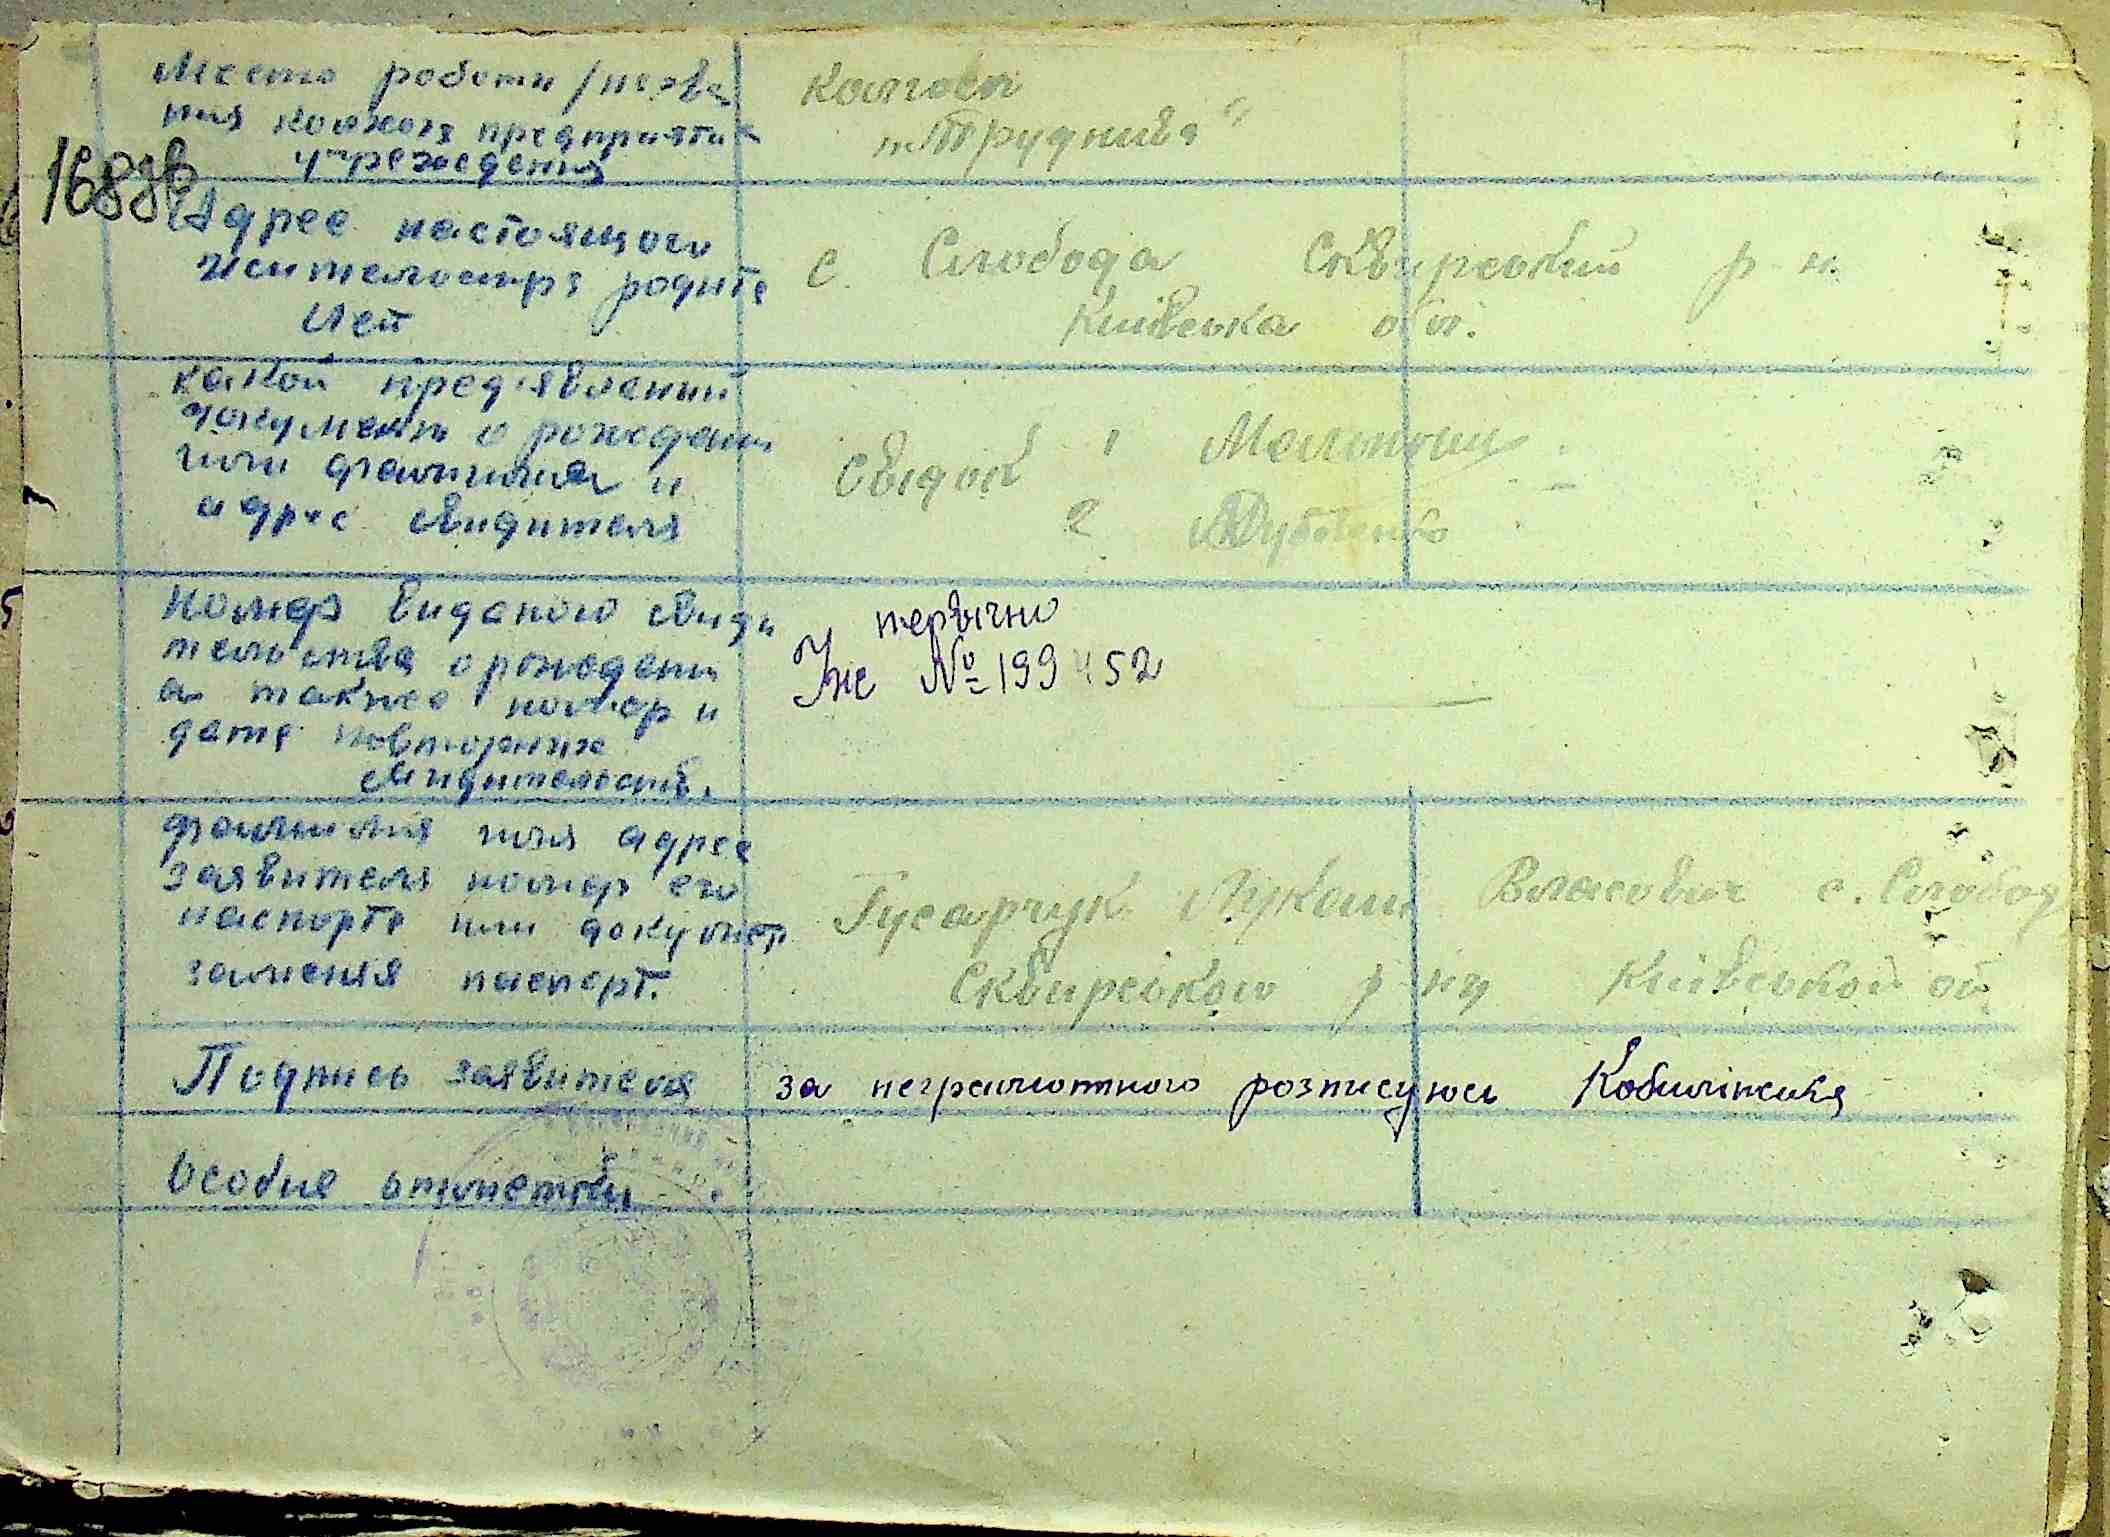 Место роботи / назва
ния колхоза предприятия
учреждения
колгосп
"Трудник"
168зв
Адрес настоящого
жительства родите
лей
с. Слобода Сквирський р-н.
Київська обл.
какой предявлений
документ о рождени
или фамилия и
адрес свидителя
Свідки 1
2
Номер виданого свиди
тельства о рождени
а также номер и
дата повторних
свидительств.
первично
№ 199452
фамилия имя адрес
заявителя номер его
паспорта или документ
заменяя паспорт.
Гусарчук Лукаш Власович с. Слобода
Сквирського р-ну Київської об
Подпись заявителя
за неграмотного розписуюсь
Особие отметки